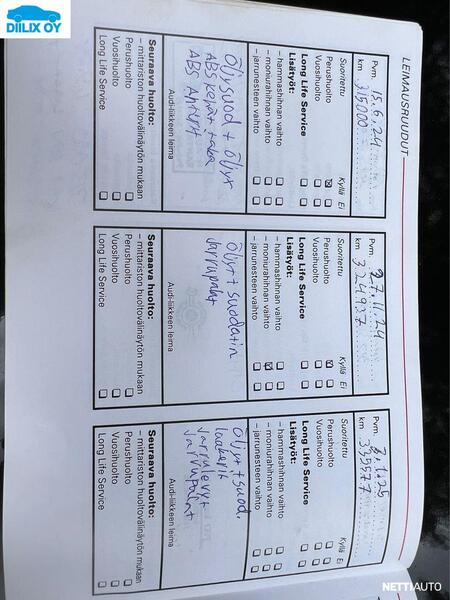 DIILIX OY
LEIMAUSRUUDUT
Pvm. 15.6.24
km 315000
Suoritettu Kyllä Ei
Perushuolto ☒ ☐
Vuosihuolto ☐ ☐
Long Life Service ☐ ☐
Lisätyöt:
– hammashihnan vaihto ☐ ☐
– moniurahihnan vaihto ☐ ☐
– jarrunesteen vaihto ☐ ☐
Öljysuod + öljyt
ABS
ABS Anturit
Audi-liikkeen leima
Seuraava huolto:
– mittariston huoltovälinäytön mukaan
Perushuolto ☐
Vuosihuolto ☐
Long Life Service ☐
Pvm. 27.11.24
km 324937
Suoritettu Kyllä Ei
Perushuolto ☒ ☐
Vuosihuolto ☐ ☐
Long Life Service ☐ ☐
Lisätyöt:
– hammashihnan vaihto ☐ ☐
– moniurahihnan vaihto ☒ ☐
– jarrunesteen vaihto ☐ ☐
Öljyt + suodatin
Jarrupalat
Audi-liikkeen leima
Seuraava huolto:
– mittariston huoltovälinäytön mukaan
Perushuolto ☐
Vuosihuolto ☐
Long Life Service ☐
Pvm.
km 335577
Suoritettu Kyllä Ei
Perushuolto
Vuosihuolto ☐ ☐
Long Life Service ☐ ☐
Lisätyöt:
– hammashihnan vaihto ☐ ☐
– moniurahihnan vaihto ☐ ☐
– jarrunesteen vaihto ☐ ☐
Öljyt + suod.
Jarrulevyt
Jarrupalat
Audi-liikkeen leima
Seuraava huolto:
– mittariston huoltovälinäytön mukaan
Perushuolto ☐
Vuosihuolto ☐
Long Life Service ☐
NETTIAUTO